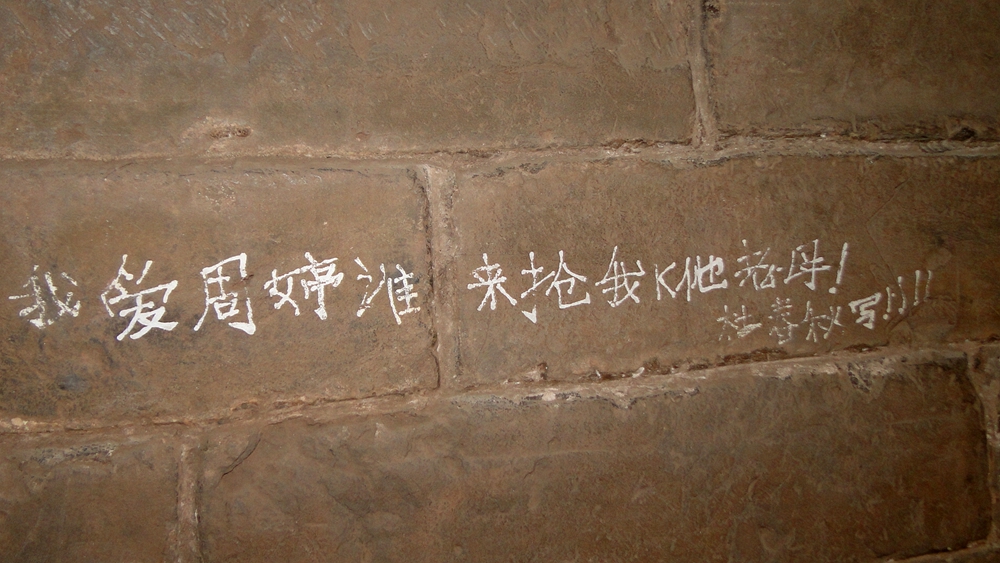 我爱周婷谁来抢我K他老母!
杜春秋写!!!!